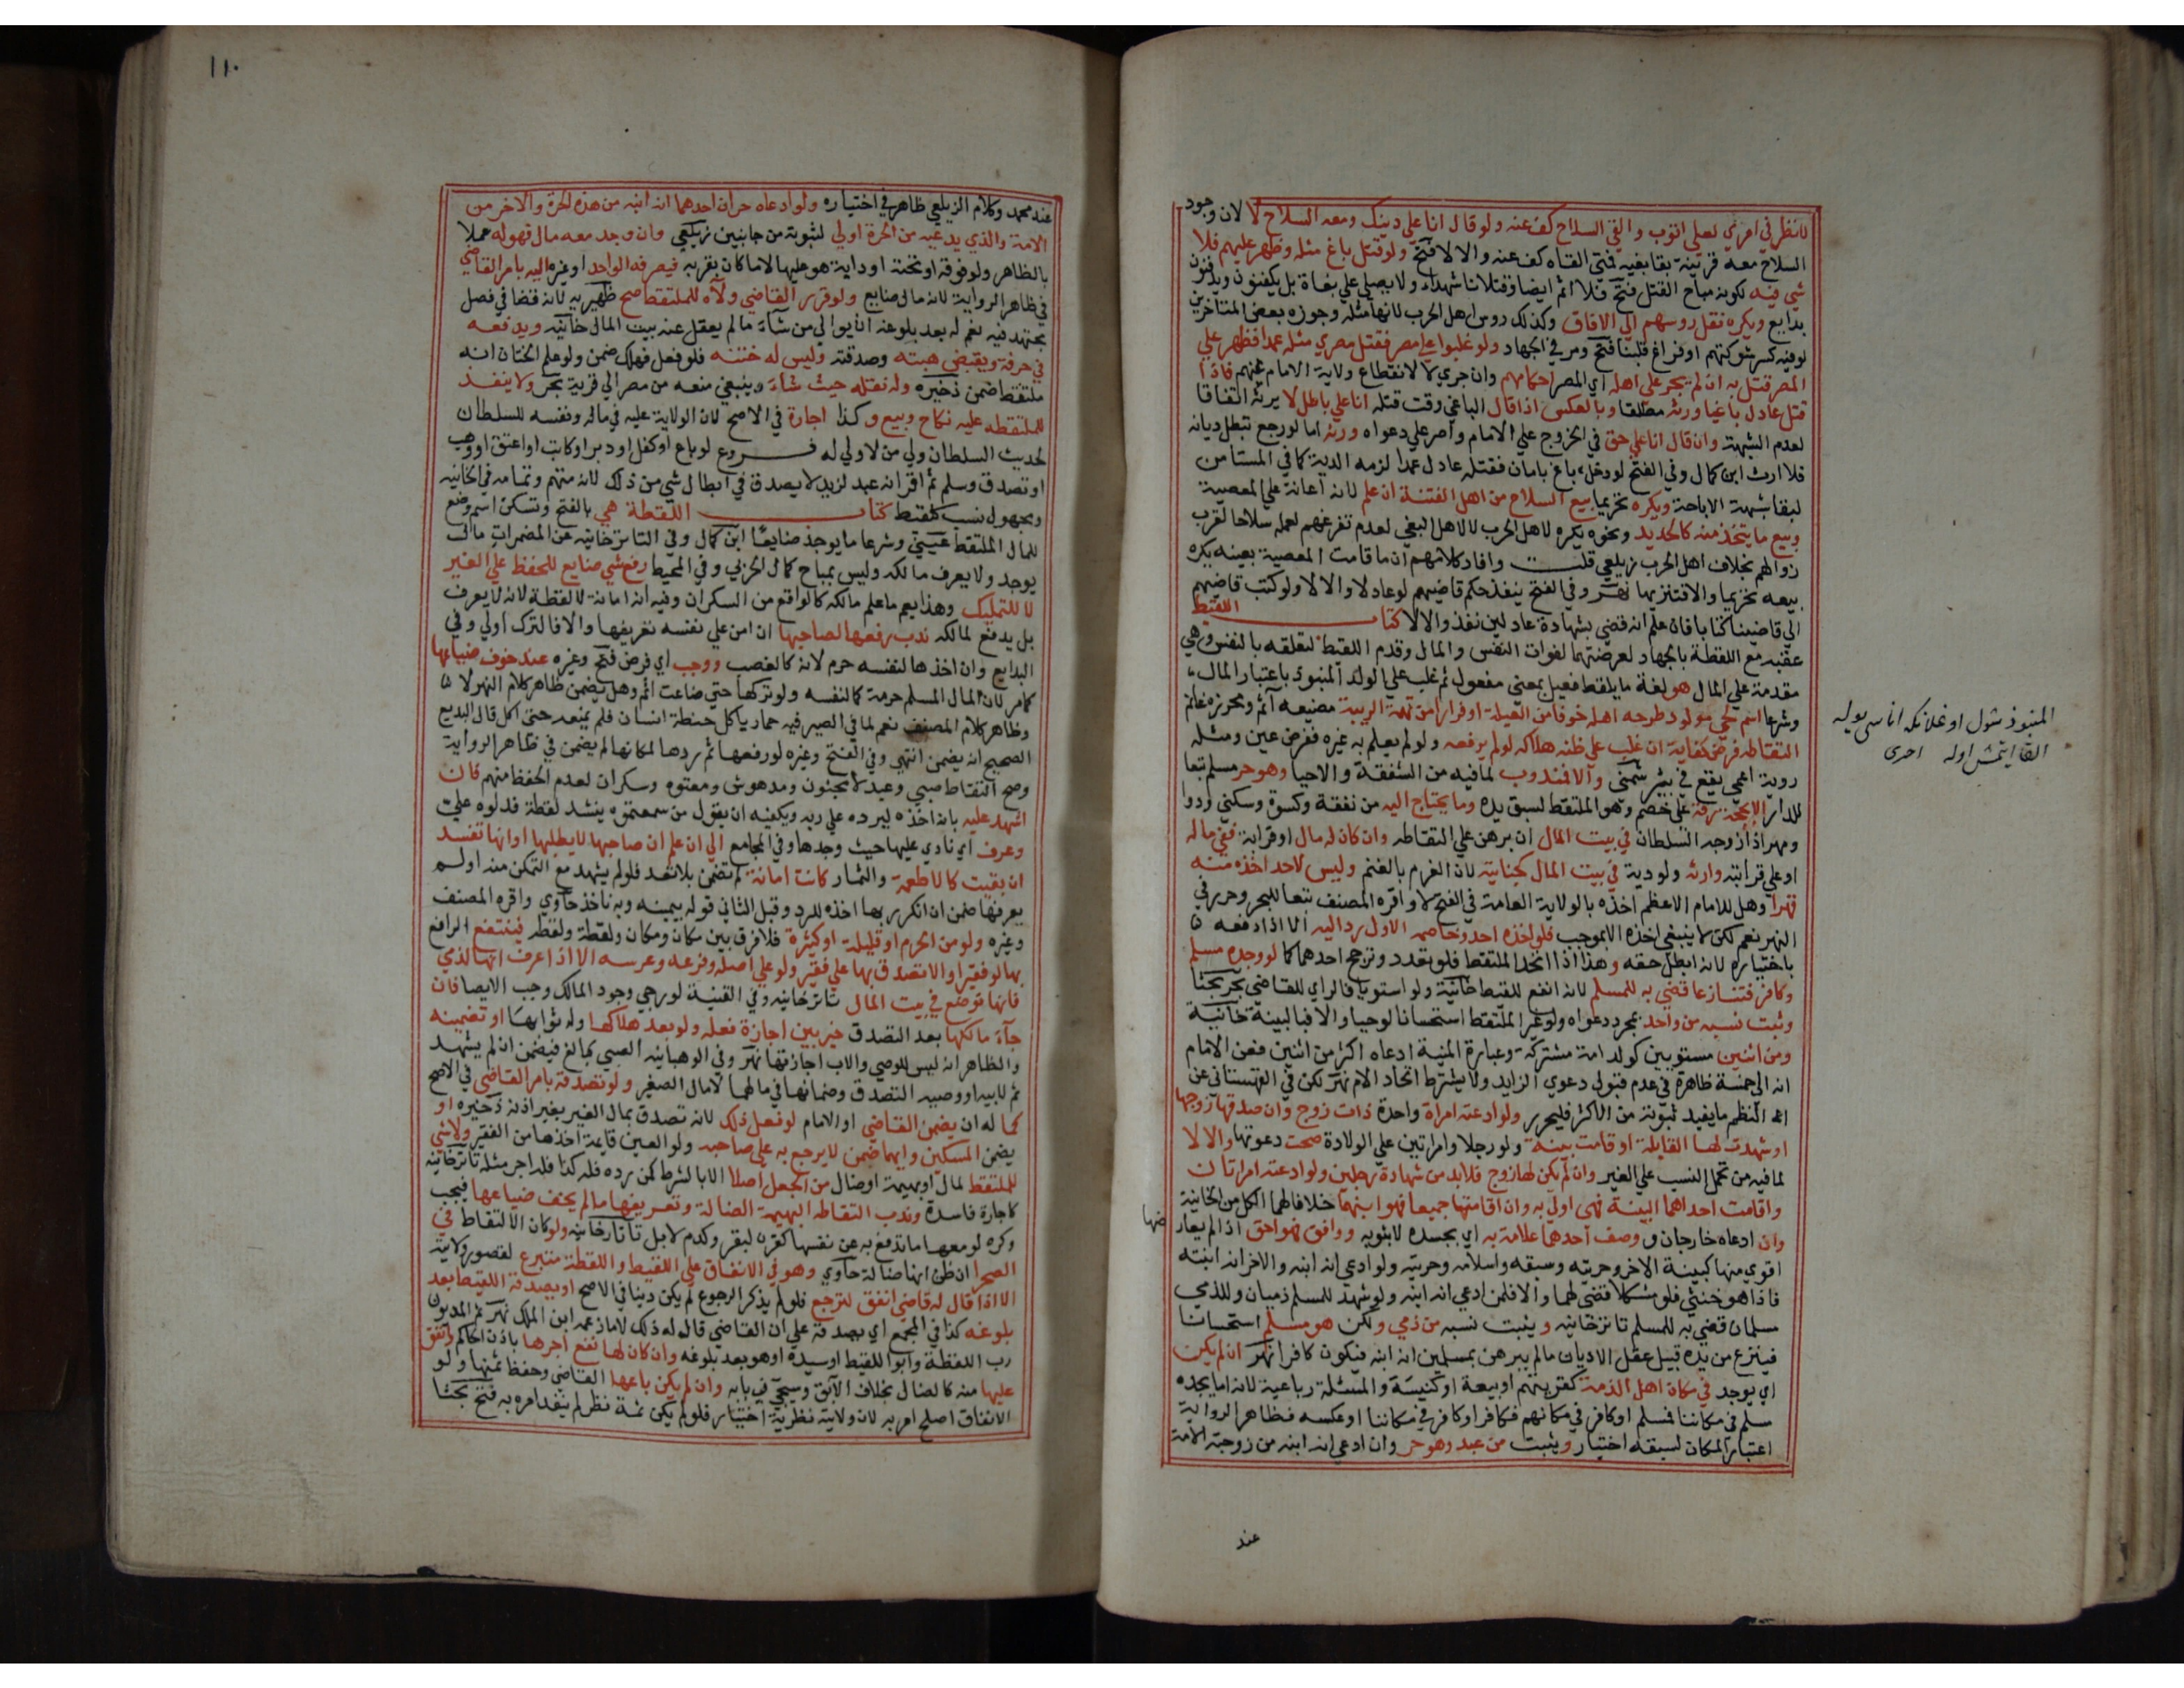 لانظر في امري لعلي اتوب والقي السلاح كف عنه ولو قال انا علي دينك ومعه السلاح لا لان وجود
السلاح معه قرينة بقا بغيه فمتي القاه كف عنه والا لا فتح ولو قتل باغ مثله وظهر عليهم فلا
شي فيه لكونه مباح القتل فتح فلا اثم ايضا وقتلانا شهداء ولا يصلي علي بغاة بل يكفنون ويدفنون
بدايع ويكره نقل روسهم الي الافاق وكذلك روس اهل الحرب لانها مثلة وجوزه بعض المتاخرين
لو فيه كسر شوكتهم او فراغ قلبنا فتح ومر في الجهاد ولو غلبوا علي مصر فقتل مصري مثله عمدا فظهر علي
المصر قتل به ان لم يجر علي اهله اي المصر احكامهم وان جري لا لانقطاع ولاية الامام عنهم فاذا
قتل عادل باغيا ورثه مطلقا وبالعكس اذا قال الباغي وقت قتله انا علي باطل لا يرثه اتفاقا
لعدم الشبهة وان قال انا علي حق في الخروج علي الامام واصر علي دعواه ورثه اما لو رجع تبطل ديانه
فلا ارث ابن كمال وفي الفتح لو دخل باغ بامان فقتله عادل عمدا لزمه الدية كما في المستامن
لبقا شبهة الاباحة ويكره تحريما بيع السلاح من اهل الفتنة ان علم لانه اعانة علي المعصية
وبيع ما يتخذ منه كالحديد ونحوه يكره لاهل الحرب لا لاهل البغي لعدم تفرغهم لعمله سلاحا لقرب
زوالهم بخلاف اهل الحرب زيلعي قلت وافاد كلامهم ان ما قامت المعصية بعينه يكره
بيعه تحريما والا فتنزيها نهر وفي الفتح ينفذ حكم قاضيهم لو عادلا والا لا ولو كتب قاضيهم
الي قاضينا كتابا فان علم انه قضي بشهادة عادلين نفذ والا لا كتاب اللقيط
عقبه مع اللقطة بالجهاد لعرضتهما لفوات النفس والمال وقدم اللقيط لتعلقه بالنفس وهي
مقدمة علي المال هو لغة ما يلقط فعيل بمعني مفعول ثم غلب علي الولد المنبوذ باعتبار المال
وشرعا اسم لحي مولود طرحه اهله خوفا من العيلة او فرارا من تهمة الريبة مضيعه اثم ومحرزه غانم
التقاطه فرض كفاية ان غلب علي ظنه هلاكه لو لم يرفعه ولو لم يعلم به غيره ففرض عين ومثله
روية اعمي يقع في بئر شمني والا فندوب لما فيه من الشفقة والاحيا وهو حر مسلم تبعا
للدار الا بحجة رقه علي خصم وهو الملتقط لسبق يده وما يحتاج اليه من نفقة وكسوة وسكني ودوا
ومهر اذا زوجه السلطان في بيت المال ان برهن علي التقاطه وان كان له مال او قرابة ففي ماله
او علي قرابته وارثه ولو دية في بيت المال كجنايته لان الغرم بالغنم وليس لاحد اخذه منه
قهرا وهل للامام الاعظم اخذه بالولاية العامة في الفتح لا واقره المصنف تبعا للبحر وحرر في
النهر نعم لكن لا ينبغي اخذه الا بموجب فلو اخذه احد وخاصمه الاول رد اليه الا اذا دفعه
باختياره لانه ابطل حقه وهذا اذا اتحد الملتقط فلو تعدد وترجح احدهما كما لو وجده مسلم
وكافر فتنازعا قضي به للمسلم لانه انفع للقيط خانية ولو استويا فالراي للقاضي بحر بحثا
وثبت نسبه من واحد بمجرد دعواه ولو غير الملتقط استحسانا لو حيا والا فبالبينة خانية
ومن اثنين مستويين كولد امة مشتركة وعبارة المنية ادعاه اكثر من اثنين فعن الامام
انه الي خمسة ظاهرة في عدم قبول دعوي الزايد ولا يشترط اتحاد الام نهر لكن في القهستاني عن
النظم ما يفيد ثبوته من الاكثر فليحرر ولو ادعته امراة واحدة ذات زوج وان صدقها زوجها
او شهدت لها القابلة او قامت بينة ولو رجلا وامراتين علي الولادة صحت دعوتها والا لا
لما فيه من تحمل النسب علي الغير وان لم يكن لها زوج فلابد من شهادة رجلين ولو ادعته امراتان
واقامت احداهما البينة فهي اولي به وان اقامتها جميعا فهو ابنهما خلافا لهما الكل من الخانية
وان ادعاه خارجان ووصف احدهما علامة به اي بجسده لا بثوبه ووافق فهو احق اذا لم يعارضها
اقوي منها كبينة الاخر وحريته وسبقه واسلامه وحريته ولو ادعي انه ابنه والاخر انه ابنته
فاذا هو خنثي فلو مشكلا قضي لهما والا فلمن ادعي انه ابنه ولو شهد للمسلم ذميان وللذمي
مسلمان قضي به للمسلم تاترخانية ويثبت نسبه من ذمي ولكن هو مسلم استحسانا
فينزع من يده قبيل عقل الاديان ما لم يبرهن بمسلمين انه ابنه فيكون كافرا نهر ان لم يكن
اي يوجد في مكان اهل الذمة كقريتهم او بيعة او كنيسة والمسئلة رباعية لانه اما يجده
مسلم في مكاننا فمسلم او كافر في مكانهم فكافر او كافر في مكاننا او عكسه فظاهر الرواية
اعتبار المكان لسبقه اختيار ويثبت من عبد وهو حر وان ادعي انه ابنه من زوجته الامة
عند
المنبوذ شول اوغلانكه اناسي يوله
القا ايتمش اوله اخرى
١١٠
عند محمد وكلام الزيلعي ظاهر في اختياره ولو ادعاه حران احدهما انه ابنه من هذه الحرة والاخر من
الامة والذي يدعيه من الحرة اولي لثبوته من جانبين زيلعي وان وجد معه مال فهو له عملا
بالظاهر ولو فوقه او تحته او دابة هو عليها لا ما كان بقربه فيصرفه الواحد او غيره اليه بامر القاضي
في ظاهر الرواية لانه مال ضايع ولو قرر القاضي ولاه للملتقط صح ظهيرية لانه قضا في فصل
مجتهد فيه نعم له بعد بلوغه ان يوالي من شاء ما لم يعقل عنه بيت المال خانية ويدفعه
في حرفة ويقبض هبته وصدقته وليس له ختنه فلو فعل فهلك ضمن ولو علم الختان انه
ملتقط ضمن ذخيره وله نقله حيث شاء وينبغي منعه من مصر الي قرية بحر ولا ينفذ
للملتقط عليه نكاح وبيع وكذا اجارة في الاصح لان الولاية عليه في ماله ونفسه للسلطان
لحديث السلطان ولي من لا ولي له فروع لو باع او كفل او دبر او كاتب او اعتق او وهب
او تصدق وسلم ثم اقر انه عبد لزيد لا يصدق في ابطال شي من ذلك لانه متهم وتمامه في الخانية
ومجهول نسب كلقيط كتاب اللقطة هي بالفتح وتسكن اسم وضع
للمال الملتقط عيني وشرعا ما يوجد ضايعا ابن كمال وفي التاترخانية عن المضمرات مال
يوجد ولا يعرف مالكه وليس بمباح كمال الحربي وفي المحيط رفع شي ضايع للحفظ علي الغير
لا للتمليك وهذا يعم ما علم مالكه كالواقع من السكران وفيه انه امانة لا لقطة لانه لا يعرف
بل يدفع لمالكه ندب رفعها لصاحبها ان امن علي نفسه تعريفها والا فالترك اولي وفي
البدايع وان اخذها لنفسه حرم لانه كالغصب ووجب اي فرض فتح وغيره عند خوف ضياعها
كما مر لان المال المسلم حرمة كما لنفسه ولو تركها حتي ضاعت اثم وهل يضمن ظاهر كلام النهر لا
وظاهر كلام المصنف نعم لما في الصيرفيه حمار ياكل حنطة انسان فلم يمنعه حتي اكل قال البديع
الصحيح انه يضمن انتهي وفي الفتح وغيره لو رفعها ثم ردها لمكانها لم يضمن في ظاهر الرواية
وصح التقاط صبي وعبد لا مجنون ومدهوش ومعتوه وسكران لعدم الحفظ منهم فان
اشهد عليه بانه اخذه ليرده علي ربه ويكفيه ان يقول من سمعتموه ينشد لقطة فدلوه علي
وعرف اي نادي عليها حيث وجدها وفي المجامع الي ان علم ان صاحبها لا يطلبها او انها تفسد
ان بقيت كالاطعمة والثمار كانت امانة لم تضمن بلا تعد فلو لم يشهد مع التمكن منه او لم
يعرفها ضمن ان انكر ربها اخذه للرد وقبل الثاني قوله بيمينه وبه ناخذ حاوي واقره المصنف
وغيره ولو من الحرم او قليلة او كثيرة فلا فرق بين مكان ومكان ولقطة ولقطة فينتفع الرافع
بها لو فقيرا والا تصدق بها علي فقير ولو علي اصله وفرعه وعرسه الا اذا عرف انها لذمي
فانها توضع في بيت المال تاترخانيه وفي القنية لو رجي وجود المالك وجب الايصا فان
جاء مالكها بعد التصدق خير بين اجازة فعله ولو بعد هلاكها وله ثوابها او تضمينه
والظاهر انه ليس للوصي والاب اجازتها نهر وفي الوهبانيه الصبي كبالغ فيضمن ان لم يشهد
ثم لابيه او وصيه التصدق وضمانها في مالهما لا مال الصغير ولو تصدقه بامر القاضي في الاصح
كما له ان يضمن القاضي او الامام لو فعل ذلك لانه تصدق بمال الغير بغير اذنه ذخيره او
يضمن المسكين وايهما ضمن لا يرجع به علي صاحبه ولو العين قايمة اخذها من الفقير ولا شي
للملتقط لمال او بهيمة او ضال من الجعل اصلا الا بالشرط كمن رده فله كذا فله اجر مثله تاترخانيه
كاجارة فاسدة وندب التقاطه البهيمة الضالة وتعريفها ما لم يخف ضياعها فيجب
وكره لو معها ما تدفع به عن نفسها كقرن لبقر وكدم لابل تاتارخانيه ولو كان الالتقاط في
الصحرا ان ظن انها ضالة حاوي وهو في الانفاق علي اللقيط واللقطة متبرع لقصور ولايته
الا اذا قال له قاضي انفق لترجع فلو لم يذكر الرجوع لم يكن دينا في الاصح او يصدقه اللقيط بعد
بلوغه كذا في المجمع اي يصدقه علي ان القاضي قال له ذلك لا ما زعمه ابن الملك نهر ثم المديون
رب اللقطة وابو اللقيط او سيده او هو بعد بلوغه وان كان لها نفع اجرها باذن الحاكم وانفق
عليها منه كالضال بخلاف الابق وسيجي في بابه وان لم يكن باعها القاضي وحفظ ثمنها ولو
الانفاق اصلح امر به لان ولايته نظرية اختيار فلو لم يكن ثمة نظر لم ينفذ امره به فتح بحثا